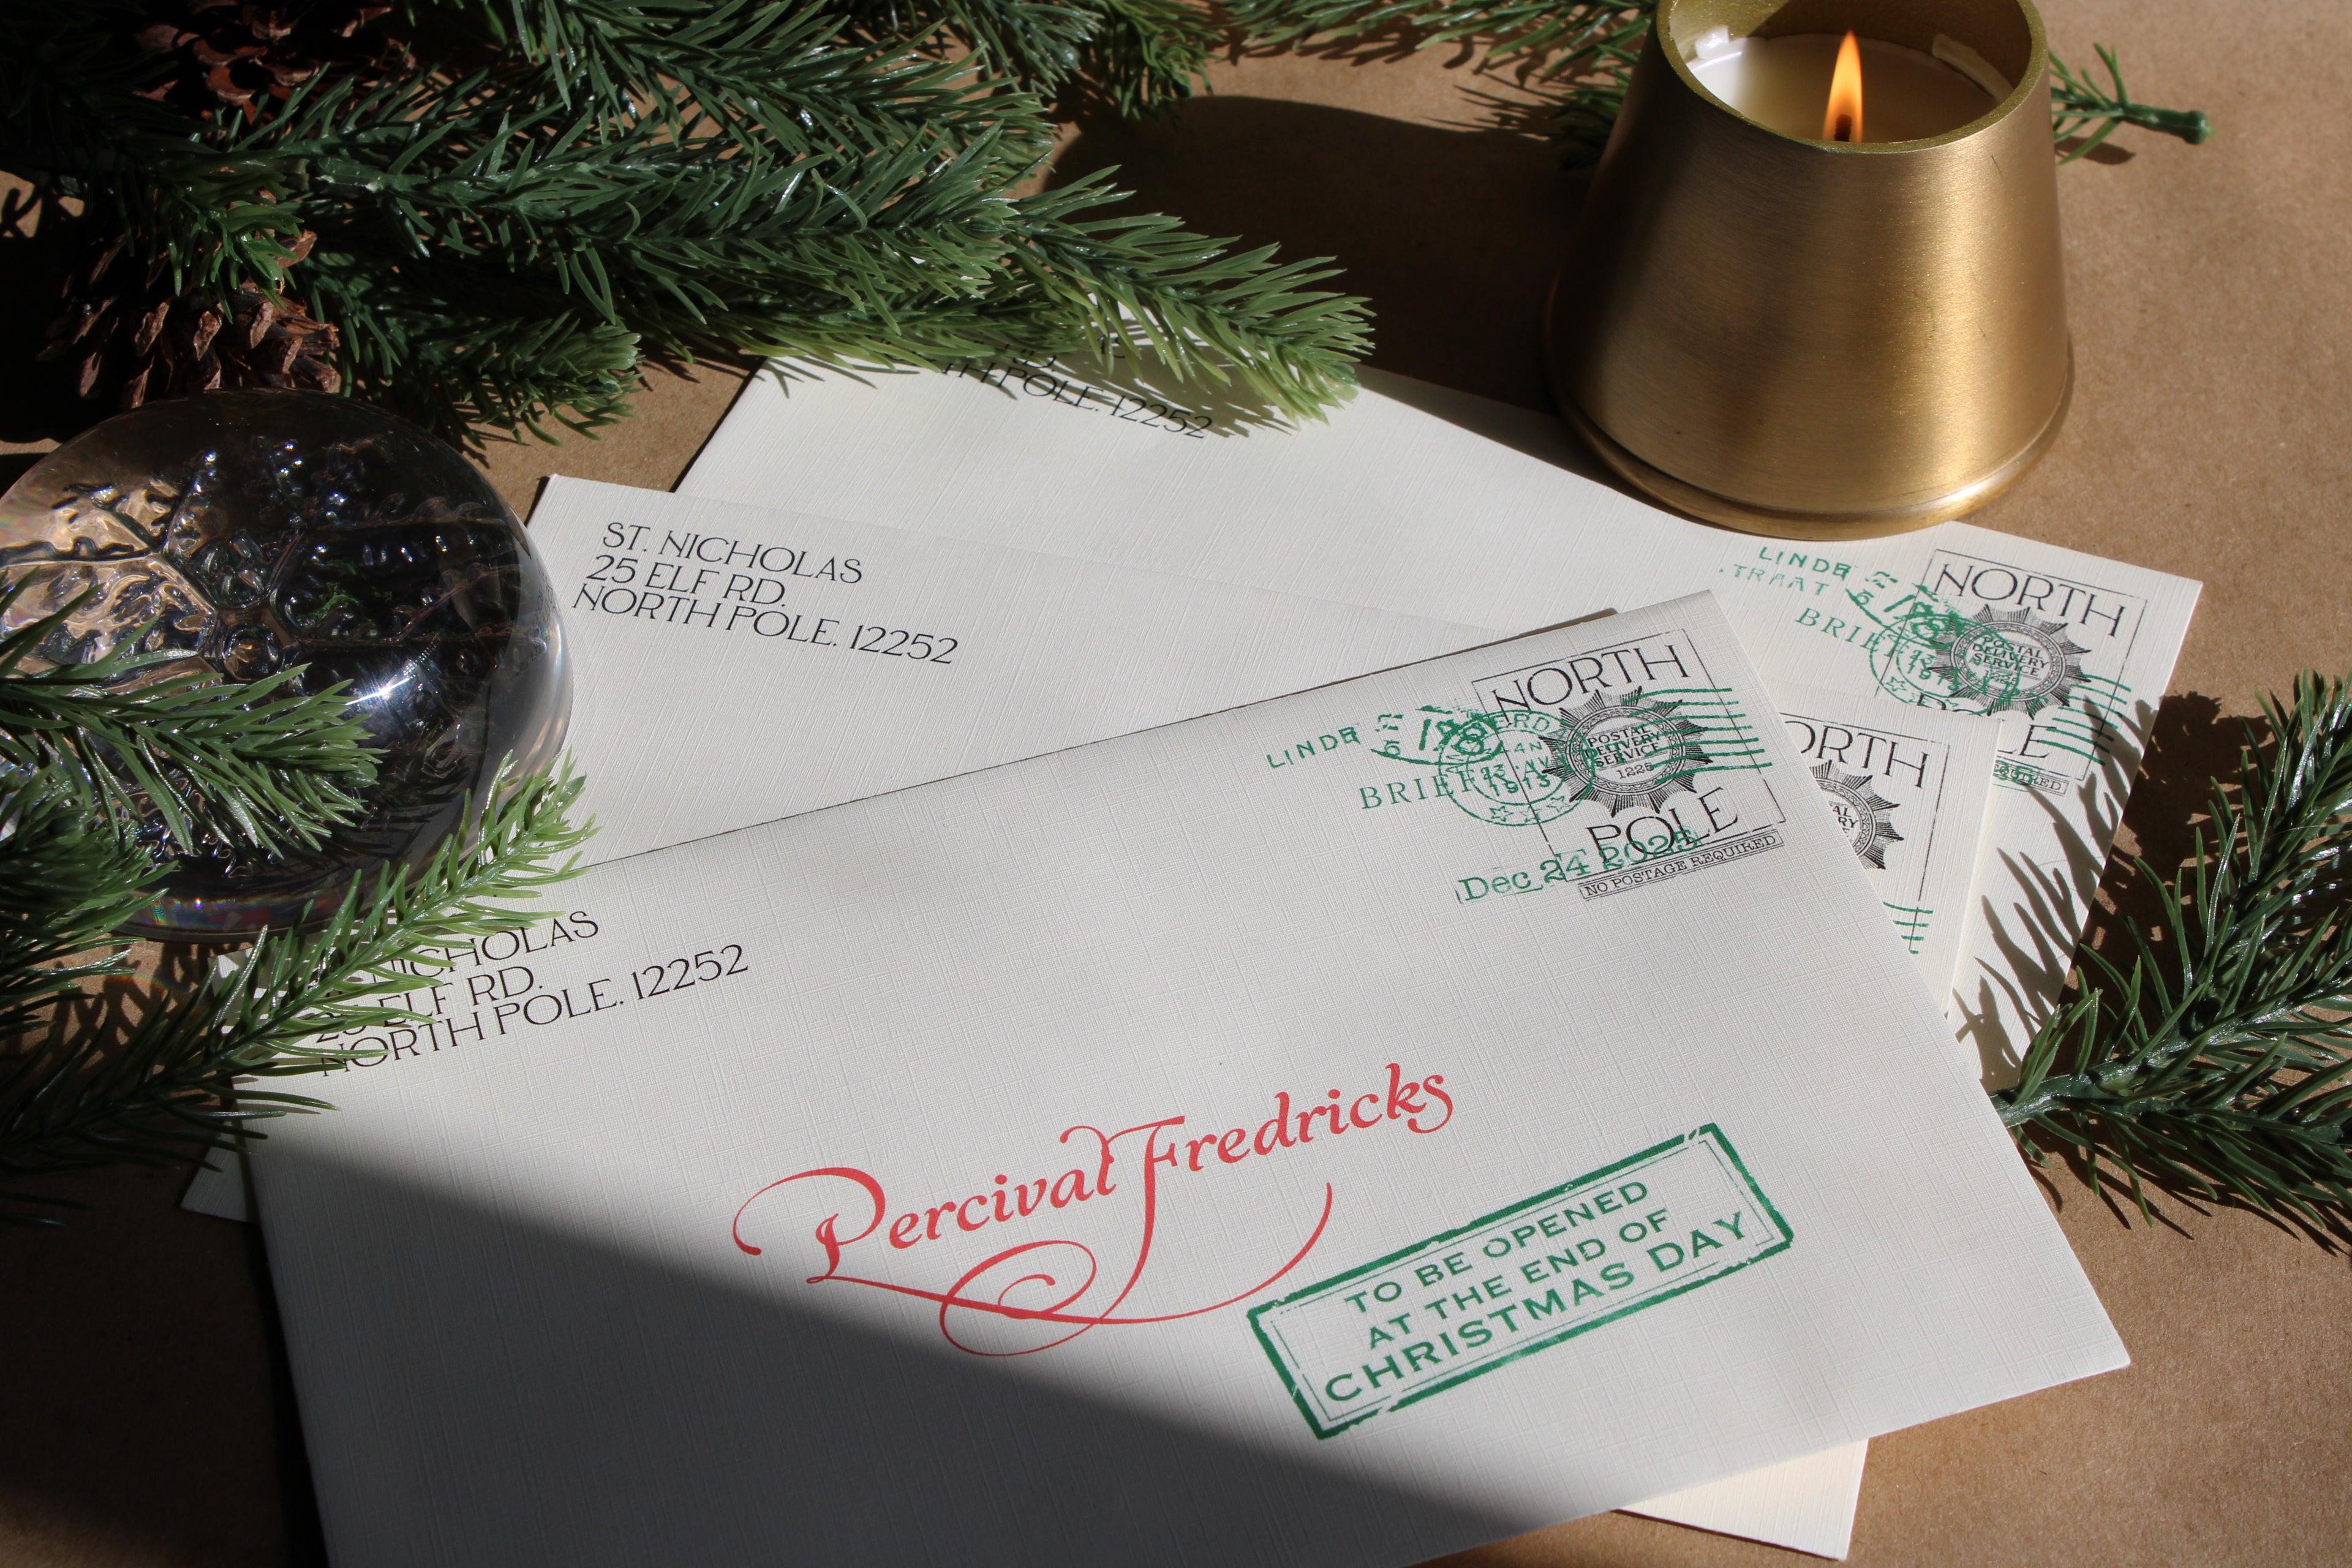 TH POLE. 12252
LINDE
TRAAT 5
BRIEF
NORTH
POSTAL
DELIVERY
SERVICE
1225
ST. NICHOLAS
25 ELF RD.
NORTH POLE. 12252
ORTH
LINDE
BRIEF
1913
NORTH
POSTAL
DELIVERY
SERVICE
1225
POLE
Dec 24 2025
NO POSTAGE REQUIRED
NICHOLAS
25 ELF RD.
NORTH POLE. 12252
Percival Fredricks
TO BE OPENED
AT THE END OF
CHRISTMAS DAY